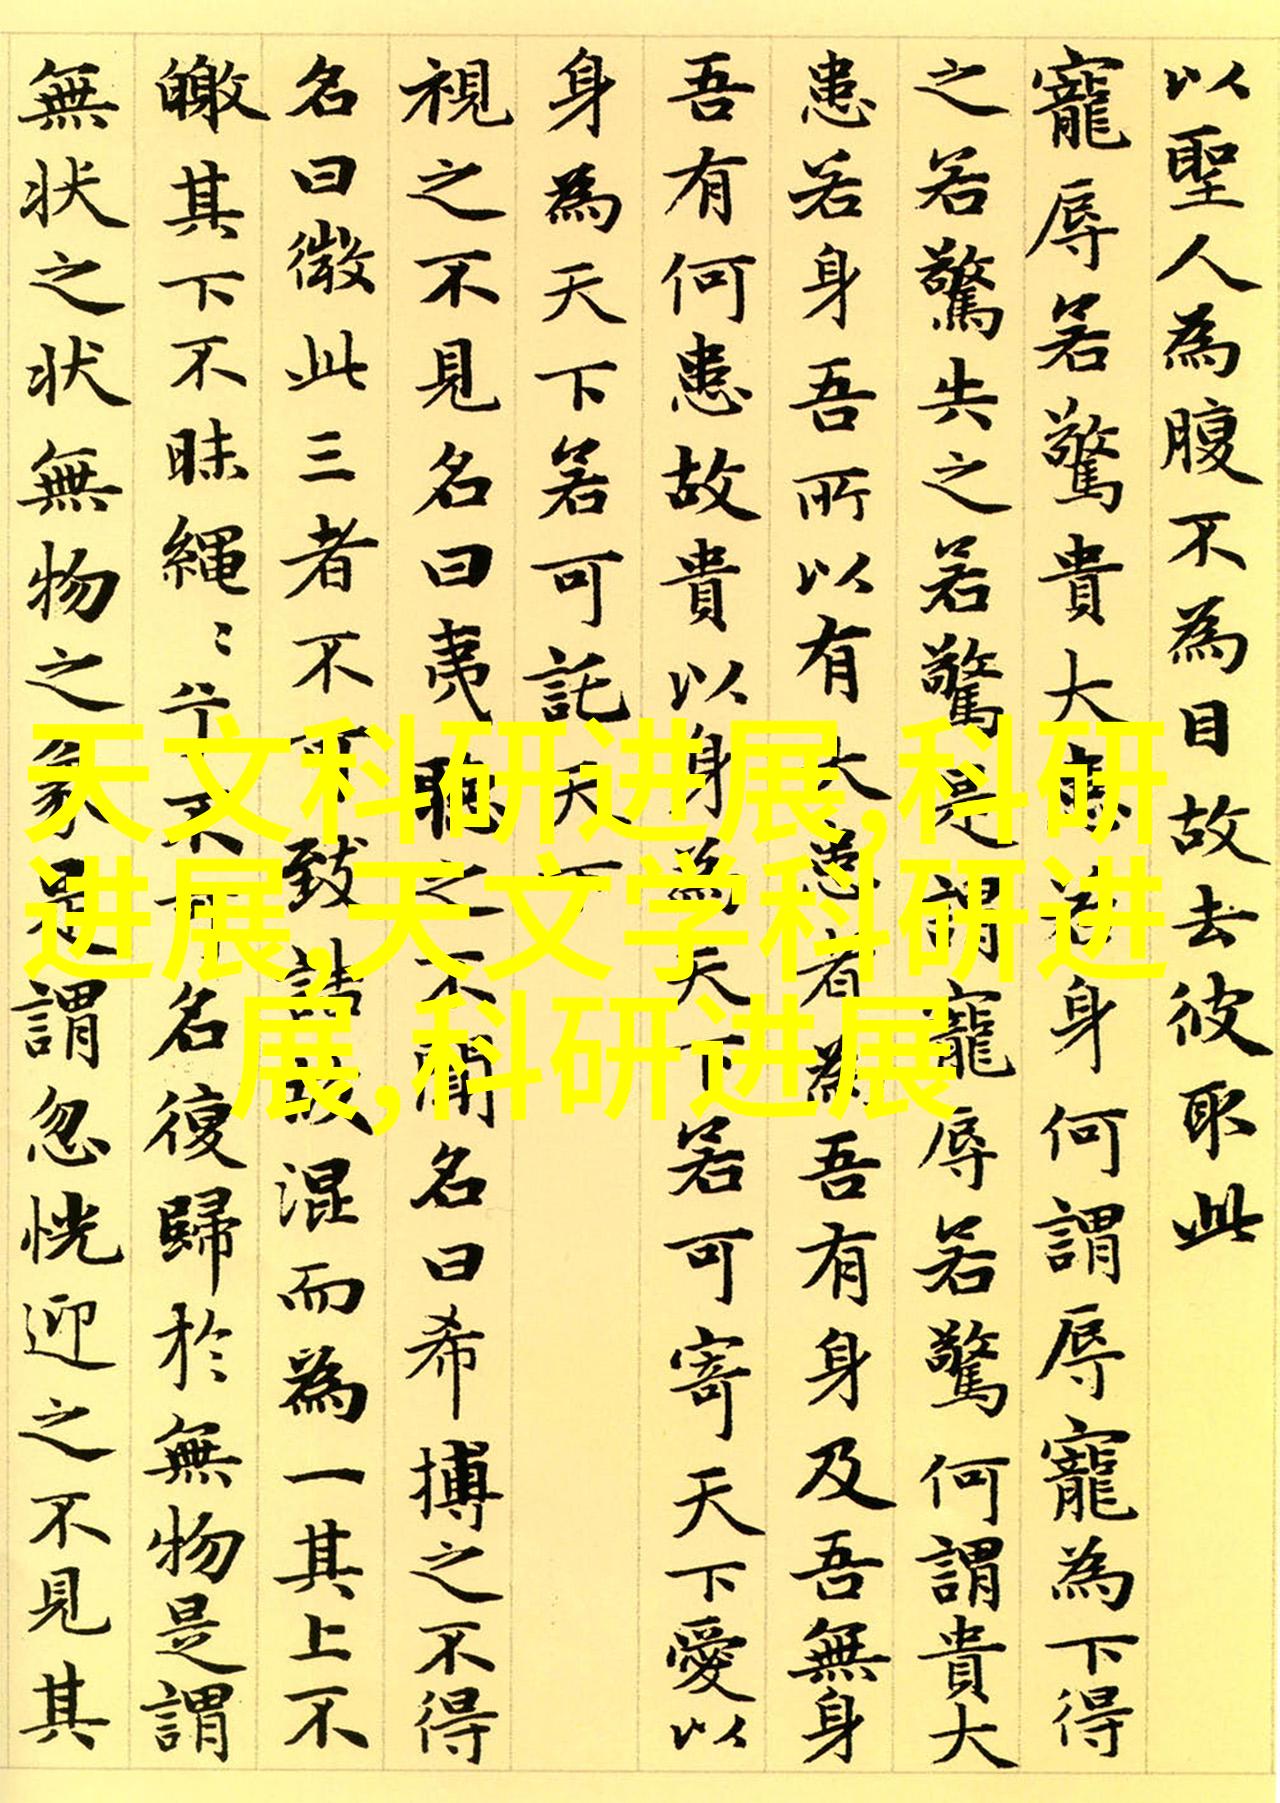 以聖人為腹不為目故去彼取此
寵辱若驚貴大患若身何謂辱寵為下得
之若驚失之若驚是謂寵辱若驚何謂貴大
患若身吾所以有大患者為吾有身及吾無身
吾有何患故貴以身為天下若可寄天下愛以
身為天下若可託天下
視之不見名曰夷聽之不聞名曰希搏之不得
名曰微此三者不可致詰故混而為一其上不
皦其下不昧繩〻兮不可名復歸於無物是謂
無状之状無物之象是謂忽恍迎之不見其
天文科研进展,科研
进展,天文学科研进
展,科研进展